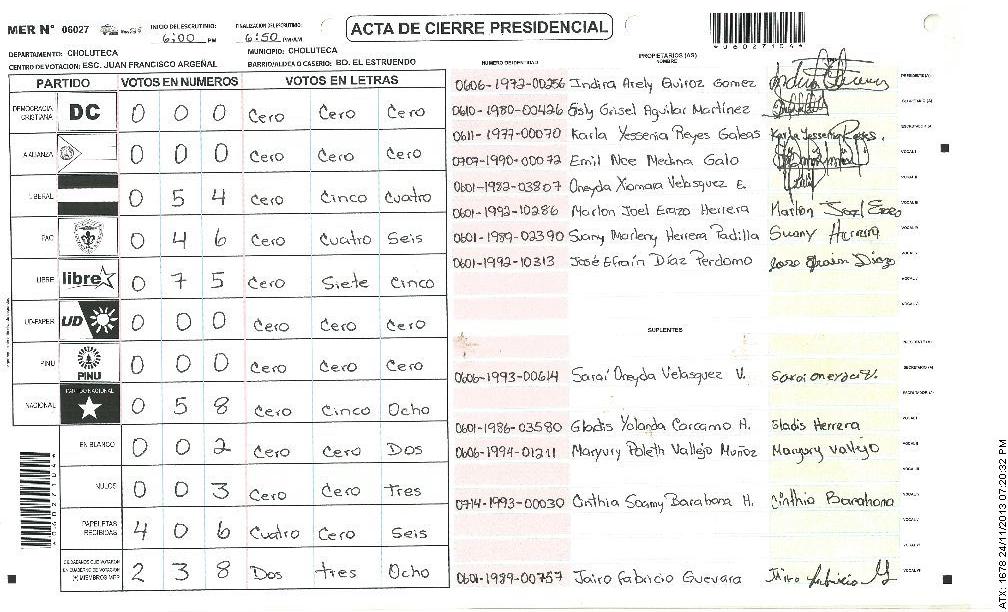 MER N° 06027
INICIO DEL ESCRUTINIO: 6:00 PM
FINALIZACION DEL ESCRUTINIO: 6:50 PM/AM
ACTA DE CIERRE PRESIDENCIAL
DEPARTAMENTO: CHOLUTECA
MUNICIPIO: CHOLUTECA
CENTRO DE VOTACION: ESC. JUAN FRANCISCO ARGEÑAL
BARRIO/ALDEA O CASERIO: BO. EL ESTRUENDO
PARTIDO VOTOS EN NUMEROS VOTOS EN LETRAS
DEMOCRACIA CRISTIANA DC 0 0 0 Cero Cero Cero
ALIANZA 0 0 0 Cero Cero Cero
LIBERAL 0 5 4 Cero Cinco Cuatro
PAC 0 4 6 Cero Cuatro Seis
LIBRE libre 0 7 5 Cero Siete Cinco
UD-FAPER UD 0 0 0 Cero Cero Cero
PINU PINU 0 0 0 Cero Cero Cero
NACIONAL PARTIDO NACIONAL 0 5 8 Cero Cinco Ocho
EN BLANCO 0 0 2 Cero Cero Dos
NULOS 0 0 3 Cero Cero Tres
PAPELETAS RECIBIDAS 4 0 6 Cuatro Cero Seis
CIUDADANOS QUE VOTARON EN CUADERNO DE VOTACION (+) MIEMBROS MER 2 3 8 Dos tres Ocho
NUMERO IDENTIDAD
PROPIETARIOS (AS)
NOMBRE
0606-1972-00256 Indira Arely Quiroz Gomez
0610-1980-00426 Esly Grisel Aguilar Martínez
0611-1977-00070 Karla Yessenia Reyes Galeas Karla Yessenia Reyes.
0707-1990-00072 Emil Noe Medina Galo
0601-1982-03807 Oneyda Xiomara Velasquez E.
0601-1992-10286 Marlon Joel Erazo Herrera Marlon Joel Erazo
0601-1989-02390 Suany Marleny Herrera Padilla Suany Herrera
0601-1992-10313 José Efraín Díaz Perdomo Jose Efrain Diaz
SUPLENTES
0606-1993-00614 Saraí Oneyda Velasquez V. Sarai oneyda V.
0601-1986-03580 Gladis Yolanda Carcamo H. Gladis Herrera
0606-1994-01211 Maryury Poleth Vallejo Muñoz Maryury Vallejo
0714-1993-00030 Cinthia Soamy Barahona H. Cinthia Barahona
0601-1989-00757 Jairo Fabricio Guevara Jairo fabricio G
ATX: 1678 24/11/2013 07:20:32 PM